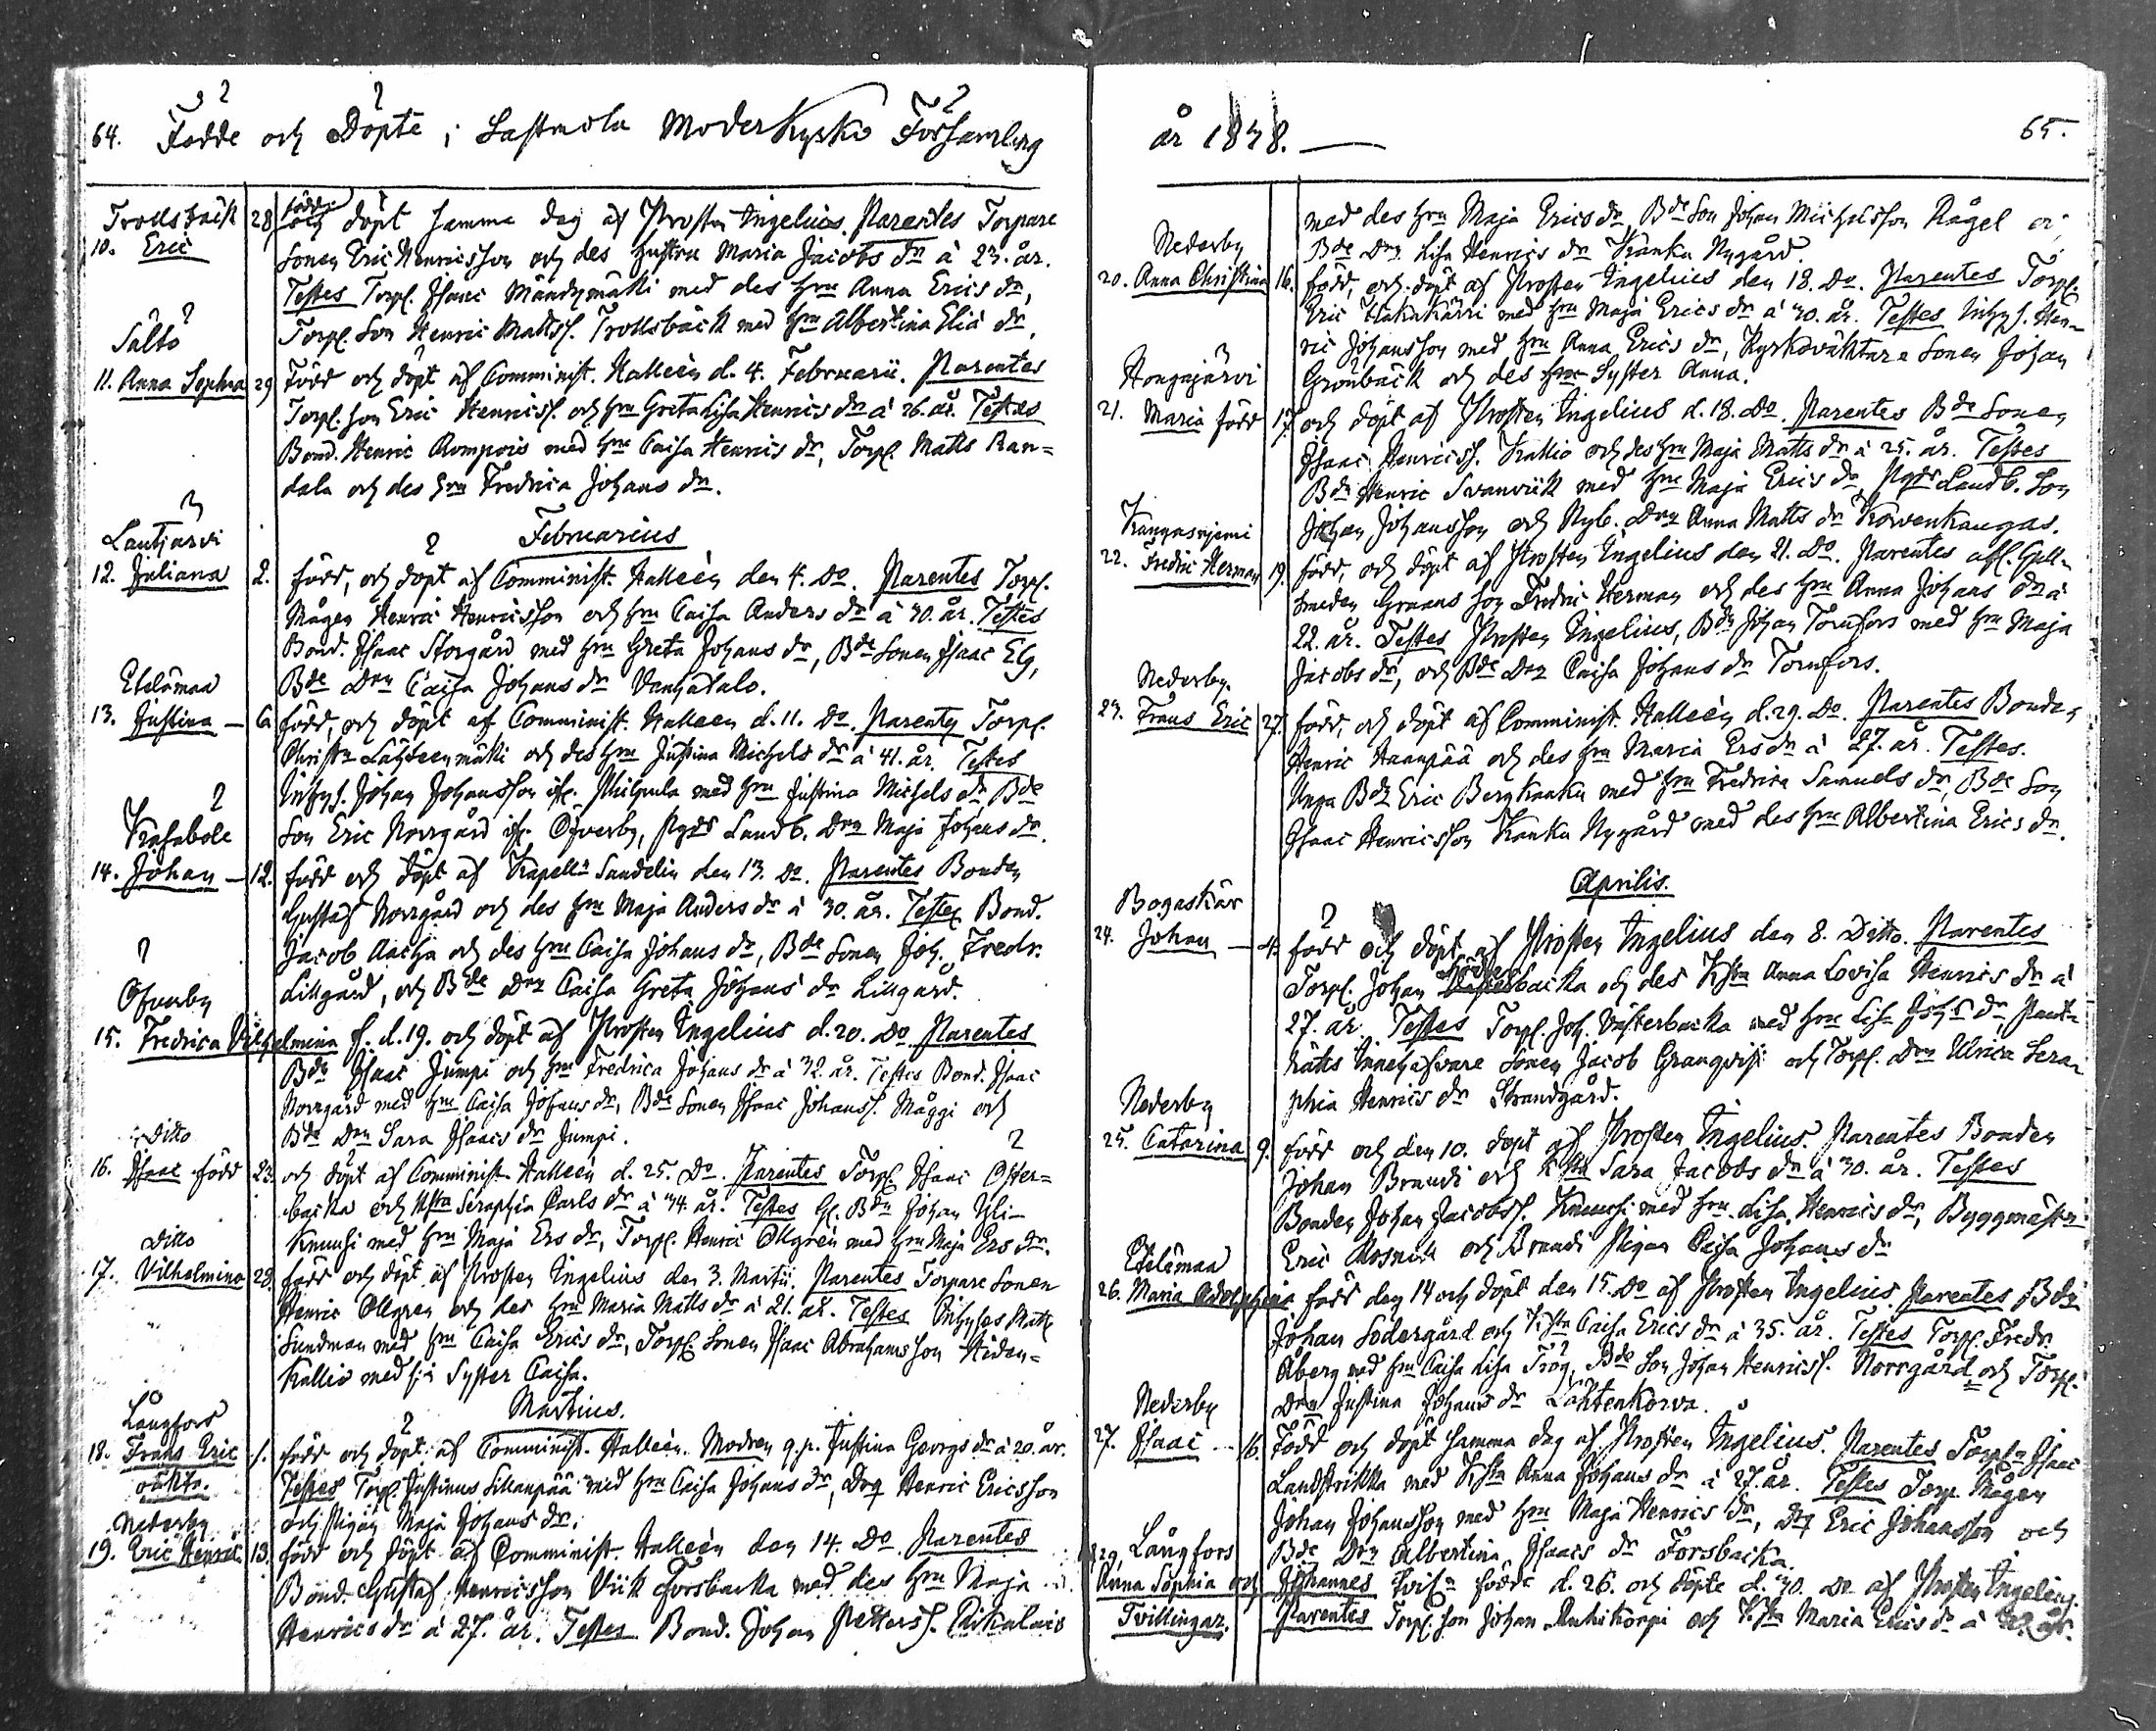 64. Födde och Döpte i Lastmola Moderkyrko Församling
Trollsbäck 28 födde och döpt samma dag af Prosten Ingelius. Parentes Torpare
10. Eric Sonen Eric Henricsson och des hustru Maria Jacobs dr à 23. år.
Testes Torp. Isaac Mändymäki med des hru Anna Erics dr,
Torp. Son Henric Mattss. Trollsbäck med hru Albertina Eliä dr,
Saltö
11. Anna Sophia 29 Född och döpt af Comminist. Halleèn d. 4. Februarii. Parentes
Torp. son Eric Henricss. och hru Greta Lisa Henrics dr à 26. år. Testes
Bond. Henric Rompois med hru Caisa Henrics dr, Torp. Matts Ran=
dala och des hru Fredrica Johans dr.
Februarius
Lautjärvi
12. Juliana 2. född, och döpt af Comminist. Halleèn den 4. Do. Parentes Torp.
Mågen Henric Henricsson och hru Caisa Anders dr à 30. år. Testes
Bond. Isaac Storgård med hru Greta Johans dr, Bde Sonen Isaac Elg,
Bde Drn Caisa Johans dr Vanhatalo.
Etelämaa
13. Justina 6. född, och döpt af Comminist. Halleèn d. 11. Do. Parentes Torp.
Christn Lähteenmäki och des hru Justina Michels dr à 41. år. Testes
Inhys. Johan Johansson ifr. Philpula med hru Justina Michels dr Bde
Son Eric Norrgård ifr. Öfverby, Pgds Landb. Drn Maja Johans dr.
Krasaböle
14. Johan 12. född och döpt af Kapelln Sandelin den 13. Do. Parentes Bonden
Gustaf Norrgård och des hru Maja Anders dr à 30. år. Testes Bond.
Jacob Aacha och des hru Caisa Johans dr, Bde Sonen Joh. Fredr.
Lillgård, och Bde Drn Caisa Greta Johans dr Lillgård.
Öfverby
15. Fredrica Vilhelmina f. d. 19. och döpt af Prosten Ingelius d. 20. Do Parentes
Bdn Isaac Jumpi och hru Fredrica Johans dr à 32. år. Testes Bond. Isaac
Norrgård med hru Caisa Johans dr, Bde Sonen Isaac Johanss. Mäggi och
Bde Drn Sara Isaacs dr Jumpi.
Ditto
16. Isaac född 23. och döpt af Comminist. Halleèn d. 25. Do. Parentes Torp. Isaac Öster=
backa och hstru Seraphia Carls dr à 34. år. Testes Gl. Bdn Johan Yli-
Knuusi med hru Maja Ers dr, Torp. Henric Ollgrèn med hru Maja Ers dr.
Ditto
17. Vilhelmina 28. född och döpt af Prosten Ingelius den 3. Martii. Parentes Torpare Sonen
Henric Ollgren och des hru Maria Matts dr à 21. år. Testes Inhyses Matts
Sundman med hru Caisa Erics dr, Torp. Sonen Isaac Abrahamsson Hiden=
Kallio med sin Syster Caisa.
Martius.
Långfors
18. Frans Eric 1. född och döpt af Comminist. Halleèn. Modren q.p. Justina Georgs dr à 20. år.
oäkta. Testes Torp. Justinus Sillanpää med hru Caisa Johans dr, Drg Henric Ericsson
och Pigan Maja Johans dr.
Nederby
19. Eric Henric 13. född och döpt af Comminist. Halleèn den 14. Do. Parentes
Bond. Gustaf Henricsson Viik Forsbacka med des hru Maja
Henrics dr à 27. år. Testes Bond. Johan Petterss. Rikalais
år 1838. 65.
med des hru Maja Erics dr, Bde Son Johan Michelsson Någel och
Bde Drn Lisa Henrics dr Kanka Nygård.
Nederby
20. Anna Christina 16. född, och döpt af Prosten Ingelius den 18. Do. Parentes Torp.
Eric Hakakärri med hru Maja Erics dr à 30. år. Testes Inhys. Hen=
ric Johansson med hru Anna Erics dr, Kyrkoväktare Sonen Johan
Grönbäck och des Syster Anna.
Hongajärvi
21. Maria född 17. och döpt af Prosten Ingelius d. 18. Do. Parentes Bde Sonen
Isaac Henricss. Kallio och des hru Maja Matts dr à 25. år. Testes
Bdn Henric Svanviik med hru Maja Erics dr, Pgds Landb. Son
Johan Johansson och Nyb. Drn Anna Matts dr Korvenkangas.
Kangasnjemi
22. Fredric Herman 19. född, och döpt af Prosten Ingelius den 21. Do. Parentes afl. Gull=
smeden Graans son Fredric Herman och des hru Anna Johans dr à
22. år. Testes Prosten Ingelius, Bdn Johan Tornfors med hru Maja
Jacobs dr, och Bde Drn Caisa Johans dr Tornfors.
Nederby.
23. Frans Eric 27. född, och döpt af Comminist. Halleèn d. 29. Do. Parentes Bonden
Henric Haanpää och des hru Maria Ers dr à 27. år. Testes.
Unga Bdn Eric Bergkanka med hru Fredrica Samuels dr, Bde Son
Isaac Henricsson Kanka Nygård med des hru Albertina Erics dr.
Aprilis.
Bogaskär
24. Johan 4. född och döpt af Prosten Ingelius den 8. Ditto. Parentes
Torp. Johan Söderbacka och des hstru Anna Lovisa Henrics dr à
27. år Testes Torp. Joh. Västerbacka med hru Lisa Johs dr, Pant=
rätts Innehafvare Sonen Jacob Granqvist och Torp. Drn Ulrica Sera=
phia Henrics dr Strandgård.
Nederby
25. Catarina 9. född och den 10. döpt af Prosten Ingelius. Parentes Bonden
Johan Brandi och hstru Sara Jacobs dr à 30. år. Testes
Bonden Johan Jacobss. Knuusi med hru Lisa Henrics dr, Byggmästn
Eric Rosnell och Brandi Pigan Caisa Johans dr
Etelämaa
26. Maria Adolphina född den 14 och döpt den 15. Do af Prosten Ingelius. Parentes Bdn
Johan Södergård och hstru Caisa Erics dr à 35. år. Testes Torp. Fredr.
Åberg med hru Caisa Lisa Trög, Bde Son Johan Henricss. Norrgård och Torp.
Drn Justina Johans dr Lähtenkorva.
Nederby
27. Isaac 16. Född och döpt samma dag af Prosten Ingelius. Parentes Torpn Isaac
Landstrikka med hstru Anna Johans dr à 27. år. Testes Torp. Mågen
Johan Johansson med hru Maja Henrics dr, Drg Eric Johansson och
Bde Drn Albertina Isaacs dr Forsbacka.
29. Långfors
Anna Sophia och Johannes födde d. 26. och döpte d. 30. Do af Prosten Ingelius.
Tvillingar. Parentes Torp. son Johan Ruhikorpi och hstru Maria Erics dr à